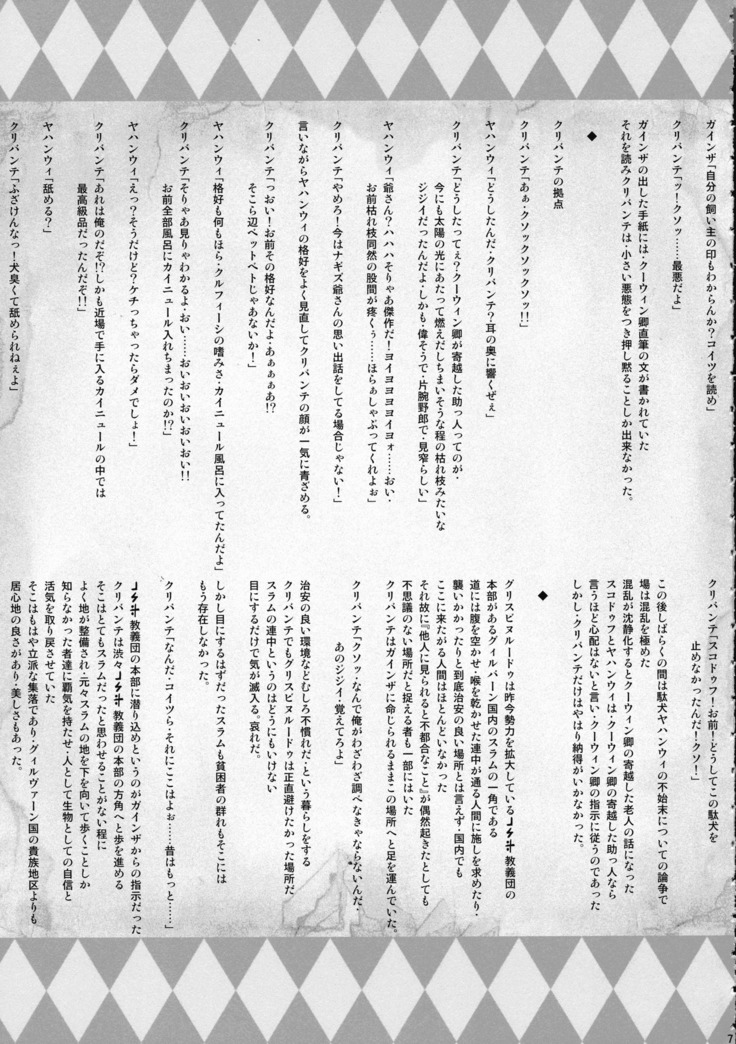 ガインザ「自分の飼い主の印もわからんか?コイツを読め」
クリパンテ「ッ!クソッ……最悪だよ」
ガインザの出した手紙には・クーウィン卿直筆の文が書かれていた
それを読みクリパンテは・小さい悪態をつき押し黙ることしか出来なかった。
◆
クリパンテの拠点
クリパンテ「あぁ・クソックソックソッ!!」
ヤハンウィ「どうしたんだ・クリパンテ?耳の奥に響くぜぇ」
クリパンテ「どうしたってぇ?クーウィン卿が寄越した助っ人ってのが・
今にも太陽の光にあたって燃えだしちまいそうな程の枯れ枝みたいな
ジジイだったんだよ・しかも・偉そうで・片腕野郎で・見窄らしい」
ヤハンウィ「爺さん?ハハハそりゃあ傑作だ!ヨイヨヨヨヨイヨォ……おい・
お前枯れ枝同然の股間が疼くぅ……ほらぁしゃぶってくれよぉ」
クリパンテ「やめろ!今はナギズ爺さんの思い出話をしてる場合じゃない!」
言いながらヤハンウィの格好をよく見直してクリパンテの顔が一気に青ざめる。
クリパンテ「つおい!お前その格好なんだよ・あぁぁぁあ!?
そこら辺ベットベトじゃあないか!」
ヤハンウィ「格好も何もほら・クルフィーシの嗜みさ・カイニュール風呂に入ってたんだよ」
クリパンテ「そりゃあ見りゃわかるよ・おい……おいおいおいおいおい!!
お前全部風呂にカイニュール入れちまったのか!?」
ヤハンウィ「えっ?そうだけど?ケチっちゃったらダメでしょ!」
クリパンテ「あれは俺のだぞ!?しかも近場で手に入るカイニュールの中では
最高級品だったんだぞ!!」
ヤハンウィ「舐める?」
クリパンテ「ふざけんなっ!犬臭くて舐められねぇよ」
クリパンテ「スコドゥフ!お前!どうしてこの駄犬を
止めなかったんだ!クソ!」
この後しばらくの間は駄犬ヤハンウィの不始末についての論争で
場は混乱を極めた
混乱が沈静化するとクーウィン卿の寄越した老人の話になった
スコドゥフとヤハンウィは・クーウィン卿の寄越した助っ人なら
言うほど心配はないと言い・クーウィン卿の指示に従うのであった
しかし・クリパンテだけはやはり納得がいかなかった。
◆
グリスビヌルードゥは昨今勢力を拡大している教義団の
本部があるグィルバーン国内のスラムの一角である
道には腹を空かせ・喉を乾かせた連中が通る人間に施しを求めたり・
襲いかかったりと到底治安の良い場所とは言えず・国内でも
ここに来たがる人間はほとんどいなかった
それ故に『他人に見られると不都合なこと』が偶然起きたとしても
不思議のない場所だと捉える者も一部にはいた
クリパンテはガインザに命じられるままこの場所へと足を運んでいた。
クリパンテ「クソッ・なんで俺がわざわざ調べなきゃならないんだ・
あのジジイ・覚えてろよ」
治安の良い環境などむしろ不慣れだ・という暮らしをする
クリパンテでもグリスビヌルードゥは正直避けたかった場所だ
スラムの連中というのはどうにもいけない
目にするだけで気が滅入る。哀れだ。
しかし目にするはずだったスラムも貧困者の群れもそこには
もう存在しなかった。
クリパンテ「なんだ・コイツら・それにここはよぉ……昔はもっと……」
教義団の本部に潜り込めというのがガインザからの指示だった
クリパンテは渋々教義団の本部の方角へと歩を進める
そこはとてもスラムだったと思わせることがない程に
よく地が整備され・元々スラムの地を下を向いて歩くことしか
知らなかった者達に覇気を持たせ・人として生物としての自信と
活気を取り戻させていた
そこはもはや立派な集落であり・グィルヴァーン国の貴族地区よりも
居心地の良さがあり・美しさもあった。
7